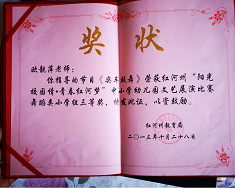 奖状
欧靓萍老师：
你指导的节目《奥车敖舞》荣获红河州“阳光
校园情·青春红河梦”中小学幼儿园文艺展演比赛
舞蹈类小学组三等奖，特发此证，以资鼓励。
红河州教育局
二〇一三年十月二十八日